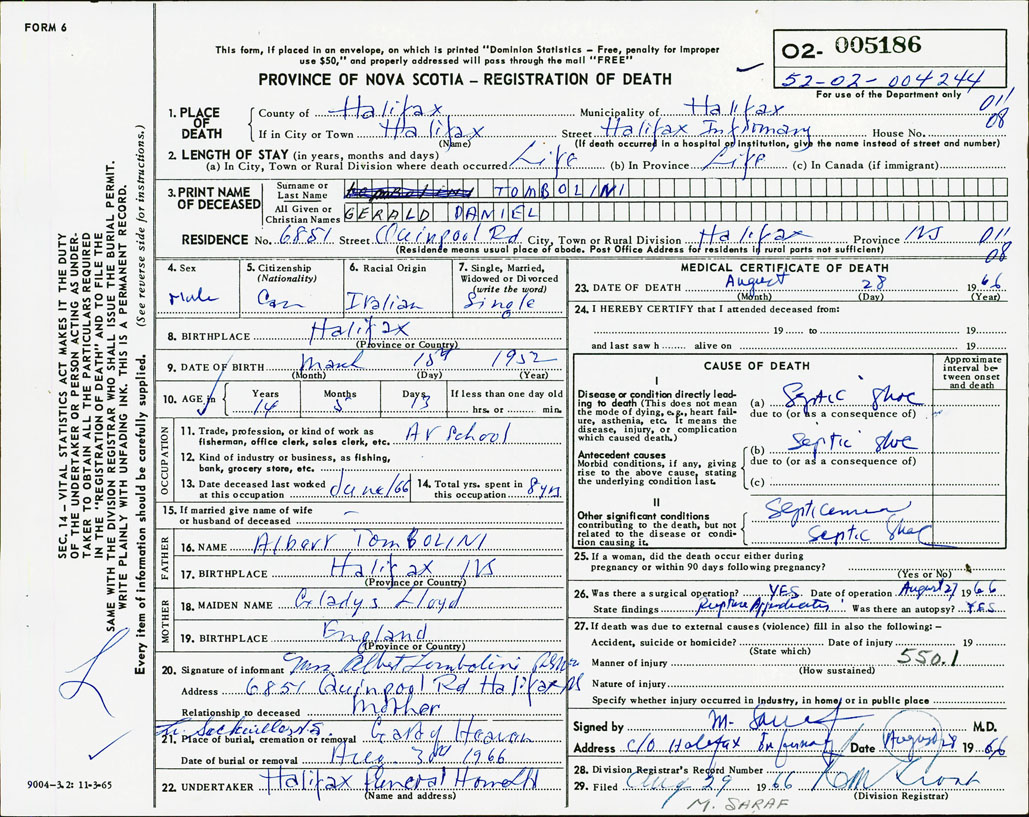 FORM 6
This form, if placed in an envelope, on which is printed "Dominion Statistics – Free, penalty for improper
use $50," and properly addressed will pass through the mail "FREE"
PROVINCE OF NOVA SCOTIA – REGISTRATION OF DEATH
O2- 005186
52-02-004244
For use of the Department only
011
08
1. PLACE OF DEATH
County of Halifax Municipality of Halifax
If in City or Town Halifax Street Halifax Infirmary House No.
(Name) (If death occurred in a hospital or institution, give the name instead of street and number)
2. LENGTH OF STAY (in years, months and days)
(a) In City, Town or Rural Division where death occurred Life (b) In Province Life (c) In Canada (if immigrant)
3. PRINT NAME OF DECEASED
Surname or Last Name TOMBOLINI
All Given or Christian Names GERALD DANIEL
RESIDENCE No. 6851 Street Quinpool Rd City, Town or Rural Division Halifax Province NS
(Residence means usual place of abode. Post Office Address for residents if rural parts not sufficient)
011
08
4. Sex
Male
5. Citizenship (Nationality)
Can
6. Racial Origin
Italian
7. Single, Married, Widowed or Divorced (write the word)
Single
8. BIRTHPLACE Halifax
(Province or Country)
9. DATE OF BIRTH March 15th 1952
(Month) (Day) (Year)
10. AGE in Years Months Days If less than one day old
14 5 13 hrs. or min.
OCCUPATION
11. Trade, profession or kind of work as
fisherman, office clerk, sales clerk, etc. At School
12. Kind of industry or business, as fishing,
bank, grocery store, etc.
13. Date deceased last worked
at this occupation June/66
14. Total yrs. spent in
this occupation 8 yrs
15. If married give name of wife
or husband of deceased –
FATHER
16. NAME Albert TOMBOLINI
17. BIRTHPLACE Halifax NS
(Province or Country)
MOTHER
18. MAIDEN NAME Gladys Lloyd
19. BIRTHPLACE England
(Province or Country)
20. Signature of informant Mrs Albert Tombolini
Address 6851 Quinpool Rd Halifax NS
Relationship to deceased Mother
Sackville NS
21. Place of burial, cremation or removal Gate of Heaven
Date of burial or removal Aug. 30th 1966
22. UNDERTAKER Halifax Funeral Home
(Name and address)
MEDICAL CERTIFICATE OF DEATH
23. DATE OF DEATH August 28 1966
(Month) (Day) (Year)
24. I HEREBY CERTIFY that I attended deceased from:
19 to 19
and last saw h alive on 19
CAUSE OF DEATH
Approximate interval between onset and death
I
Disease or condition directly leading to death (This does not mean
the mode of dying, e.g., heart failure, asthenia, etc. It means the
disease, injury, or complication
which caused death.)
(a) Septic Shoc
due to (or as a consequence of)
Antecedent causes
Morbid conditions, if any, giving
rise to the above cause, stating
the underlying condition last.
(b) Septic Shoc
due to (or as a consequence of)
(c)
II
Other significant conditions
contributing to the death, but not
related to the disease or condition causing it.
Septicemia
Septic Shoc
25. If a woman, did the death occur either during
pregnancy or within 90 days following pregnancy?
(Yes or No)
26. Was there a surgical operation? YES Date of operation August 27 1966
State findings Rupture Was there an autopsy? YES
27. If death was due to external causes (violence) fill in also the following:–
Accident, suicide or homicide? Date of injury 19
(State which)
550.1
Manner of injury
(How sustained)
Nature of injury
Specify whether injury occurred in industry, in home, or in public place
Signed by M. Saraf M.D.
Address C/O Halifax Infirmary Date August 28 1966
28. Division Registrar's Record Number
29. Filed Aug 29 1966
(Division Registrar)
M. SARAF
SEC. 14 – VITAL STATISTICS ACT MAKES IT THE DUTY
OF THE UNDERTAKER OR PERSON ACTING AS UNDER-
TAKER TO OBTAIN ALL THE PARTICULARS REQUIRED
IN THE "REGISTRATION OF DEATH" AND TO FILE THE
SAME WITH THE DIVISION REGISTRAR WHO SHALL ISSUE THE BURIAL PERMIT.
WRITE PLAINLY WITH UNFADING INK. THIS IS A PERMANENT RECORD.
Every item of information should be carefully supplied. (See reverse side for instructions.)
9004-3.2: 11-3-65